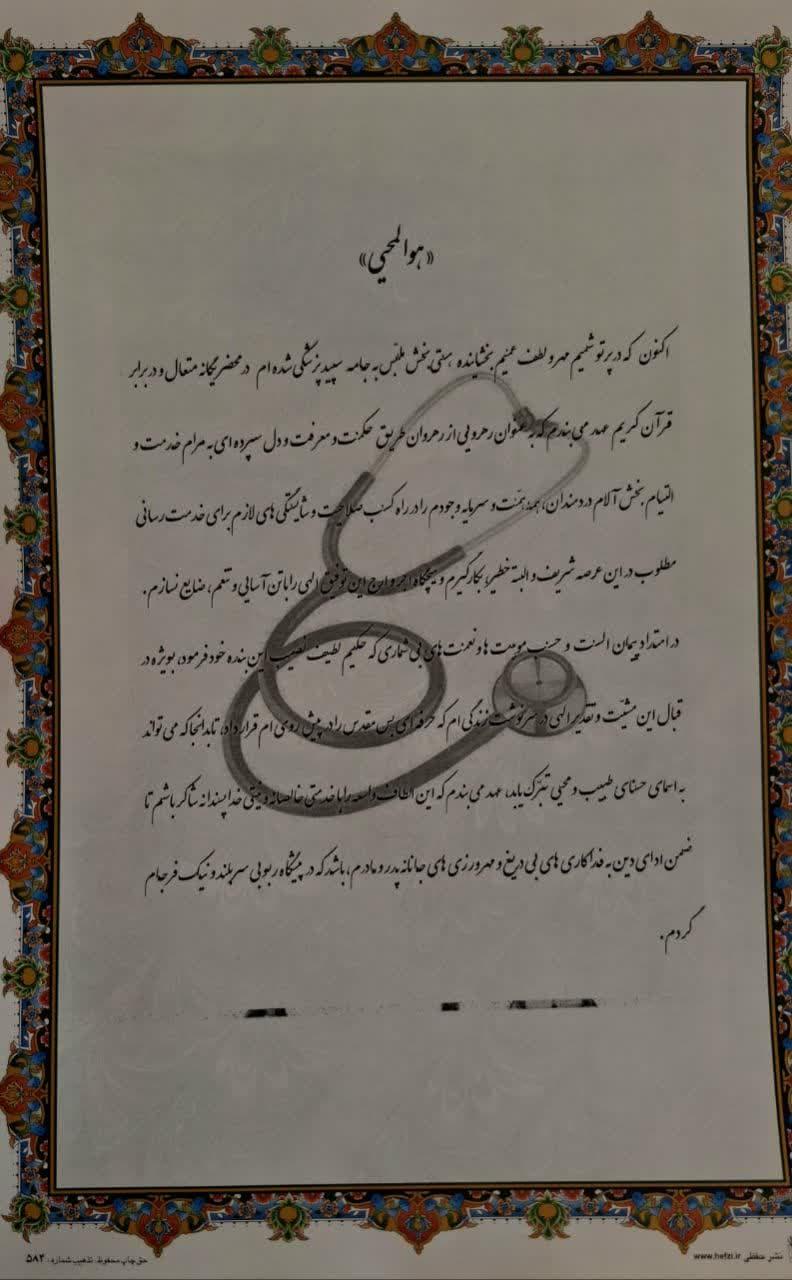 «هوالمحیی»
اکنون که در پرتو شمیم مهر و لطف عمیم بخشاینده هستی بخش ملبّس به جامه سپید پزشکی شده ام در محضر یگانه متعال و در برابر
قرآن کریم عهد می بندم که به عنوان رهرویی از رهروان طریق حکمت و معرفت و دل سپرده ای به مرام خدمت و
التیام بخش آلام دردمندان، همه همّت و سرمایه وجودم را در راه کسب صلاحیت و شایستگی های لازم برای خدمت رسانی
مطلوب در این عرصه شریف و البته خطیر، بکار گیرم و هیچگاه اجر و ارج این توفیق الهی را با تن آسایی و تنعم، ضایع نسازم.
در امتداد پیمان الست و حسب موهبت ها و نعمت های بی شماری که حکیم لطیف نصیب این بنده خود فرمود، بویژه در
قبال این مشیّت و تقدیر الهی در سرنوشت زندگی ام که حرفه ای بس مقدس را در پیش روی ام قرار داد، تا بدانجا که می تواند
به اسمای حسنای طبیب و محیی تبرّک یابد، عهد می بندم که این الطاف واسعه را با خدمتی خالصانه و نیتی خداپسندانه شاکر باشم تا
ضمن ادای دین به فداکاری های بی دریغ و مهرورزی های جانانه پدر و مادرم، باشد که در پیشگاه ربوبی سربلند و نیک فرجام
گردم.
نشر حفظی www.hefzi.ir
حق چاپ محفوظ. تذهیب شماره: ۵۸۴